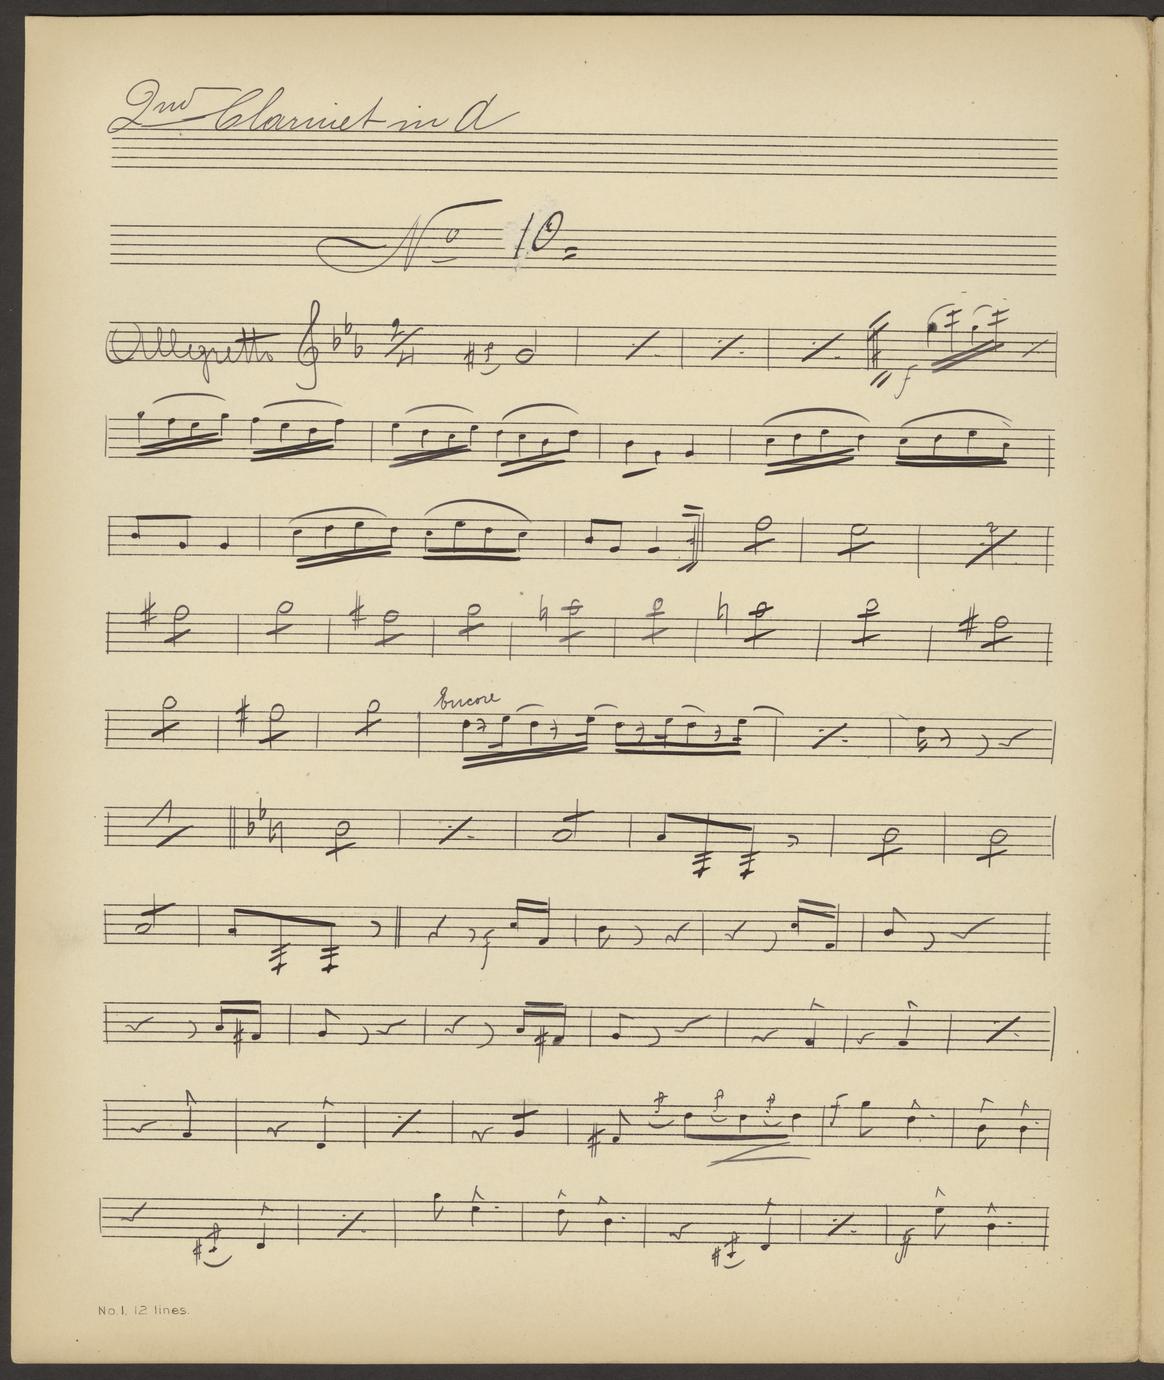 2nd Clarinet in A
No 10.
Allegretto
2/4
f
Encore
f
f
ff
No.1. 12 lines.